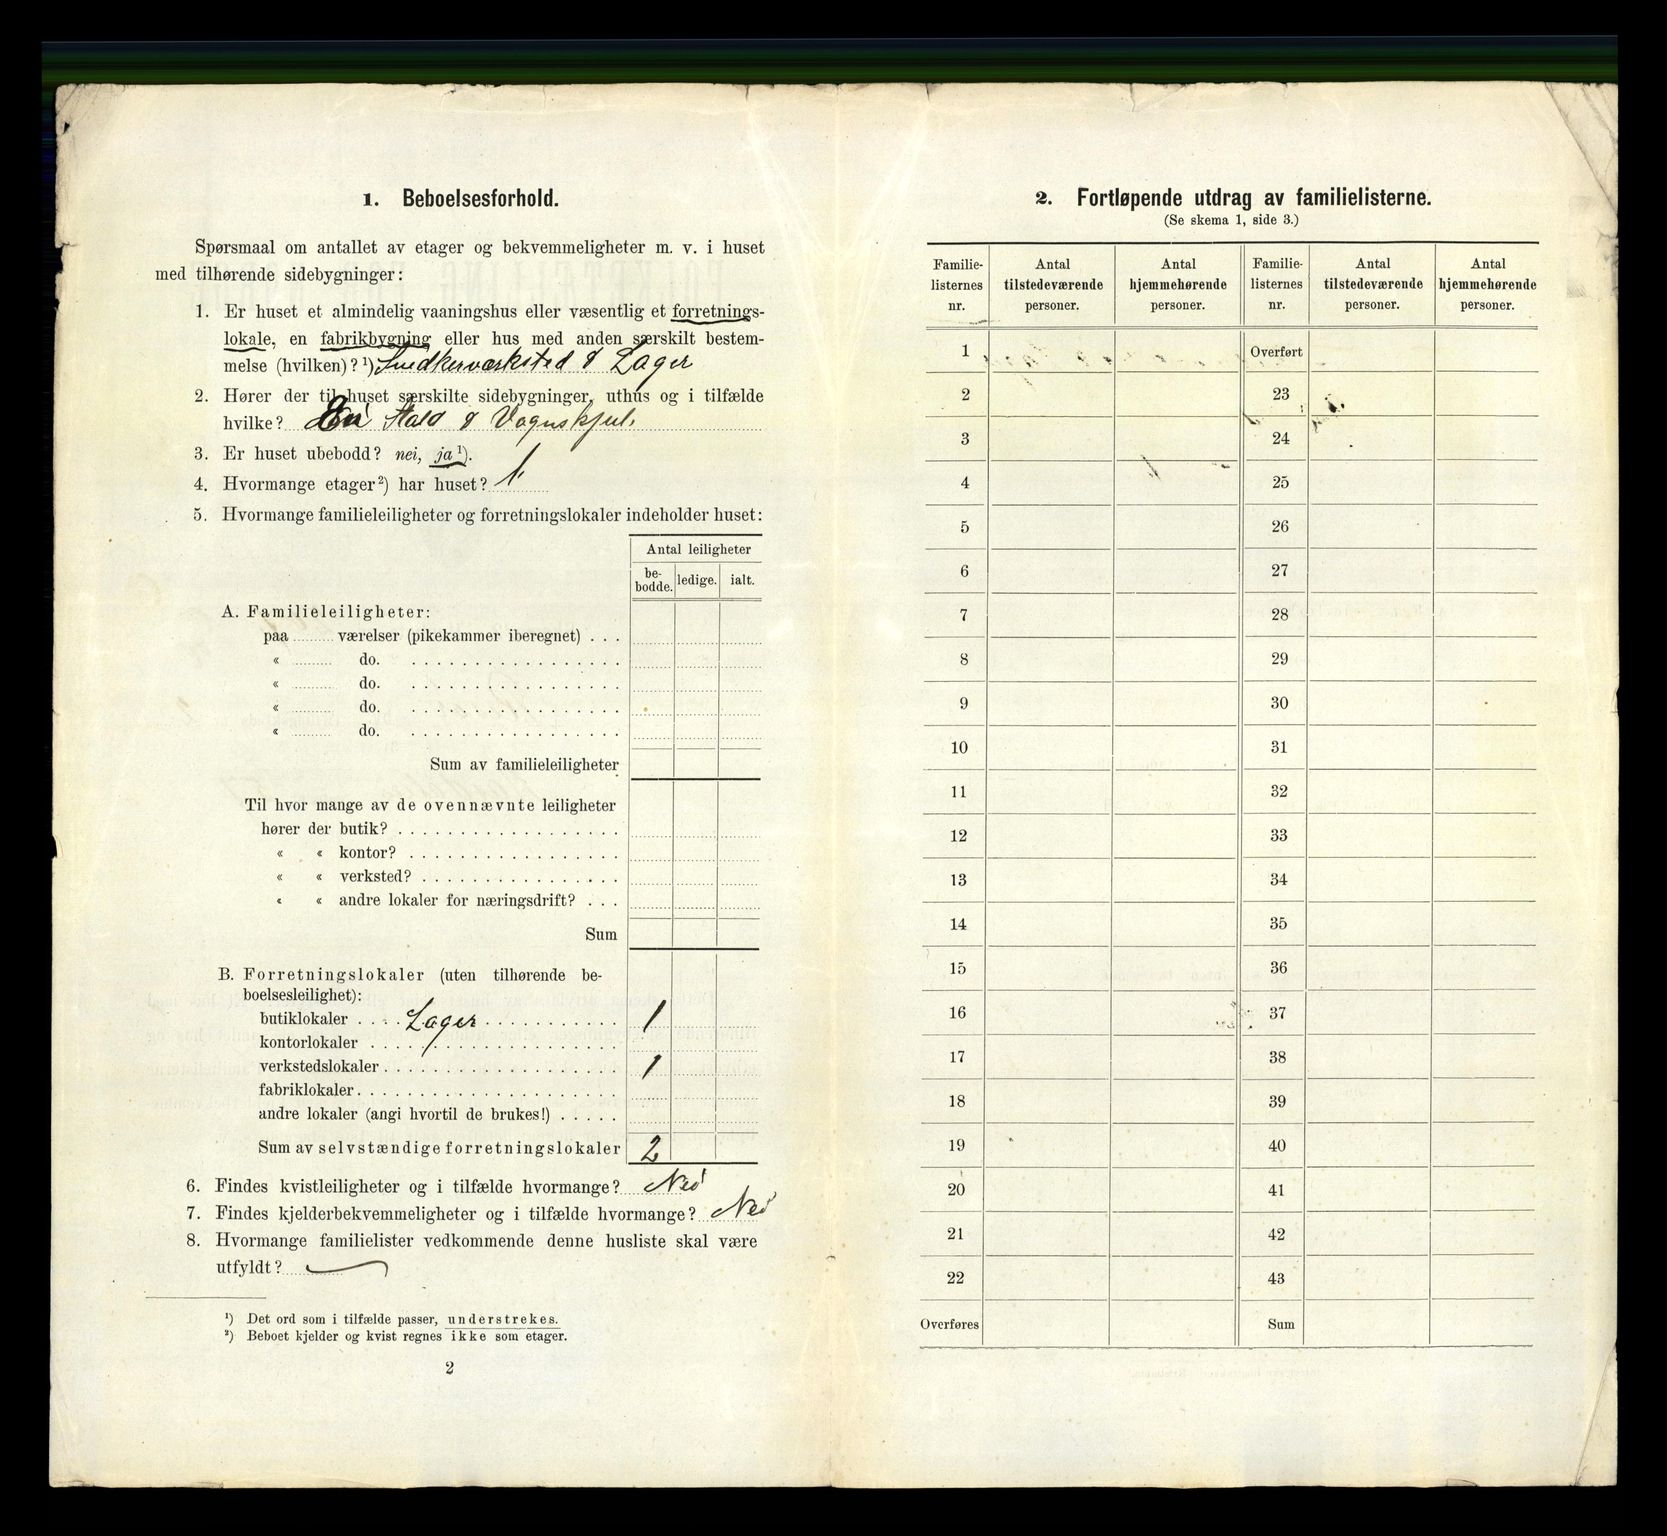 1. Beboelsesforhold.
Spørsmaal om antallet av etager og bekvemmeligheter m. v. i huset
med tilhørende sidebygninger:
1. Er huset et almindelig vaaningshus eller væsentlig et forretnings-
lokale, en fabrikbygning eller hus med anden særskilt bestem-
melse (hvilken)?¹) Snedkerværksted & Lager
2. Hører der til huset særskilte sidebygninger, uthus og i tilfælde
hvilke? En Stald & Vognskjul.
3. Er huset ubebodd? nei, ja¹).
4. Hvormange etager²) har huset? 1
5. Hvormange familieleiligheter og forretningslokaler indeholder huset:
Antal leiligheter
be-bodde. ledige. ialt.
A. Familieleiligheter:
paa ........ værelser (pikekammer iberegnet) . . .
« ........ do. . . . . . . . . . . . . . . . . .
« ........ do. . . . . . . . . . . . . . . . . .
« ........ do. . . . . . . . . . . . . . . . . .
« ........ do. . . . . . . . . . . . . . . . . .
Sum av familieleiligheter
Til hvor mange av de ovennævnte leiligheter
hører der butik? . . . . . . . . . . . . . . . . .
« « kontor? . . . . . . . . . . . . . . . .
« « verksted? . . . . . . . . . . . . . . .
« « andre lokaler for næringsdrift? . . .
Sum
B. Forretningslokaler (uten tilhørende be-
boelsesleilighet):
butiklokaler . . . . Lager . . . . . . . . . . . 1
kontorlokaler . . . . . . . . . . . . . . . . . .
verkstedslokaler . . . . . . . . . . . . . . . . . 1
fabriklokaler . . . . . . . . . . . . . . . . . . .
andre lokaler (angi hvortil de brukes!) . . . . .
Sum av selvstændige forretningslokaler 2
6. Findes kvistleiligheter og i tilfælde hvormange? Nei
7. Findes kjelderbekvemmeligheter og i tilfælde hvormange? Nei
8. Hvormange familielister vedkommende denne husliste skal være
utfyldt? —
¹) Det ord som i tilfælde passer, understrekes.
²) Beboet kjelder og kvist regnes ikke som etager.
2
2. Fortløpende utdrag av familielisterne.
(Se skema 1, side 3.)
Familie-listernes nr. Antal tilstedeværende personer. Antal hjemmehørende personer. Familie-listernes nr. Antal tilstedeværende personer. Antal hjemmehørende personer.
1 Overført
2 23
3 24
4 25
5 26
6 27
7 28
8 29
9 30
10 31
11 32
12 33
13 34
14 35
15 36
16 37
17 38
18 39
19 40
20 41
21 42
22 43
Overføres Sum